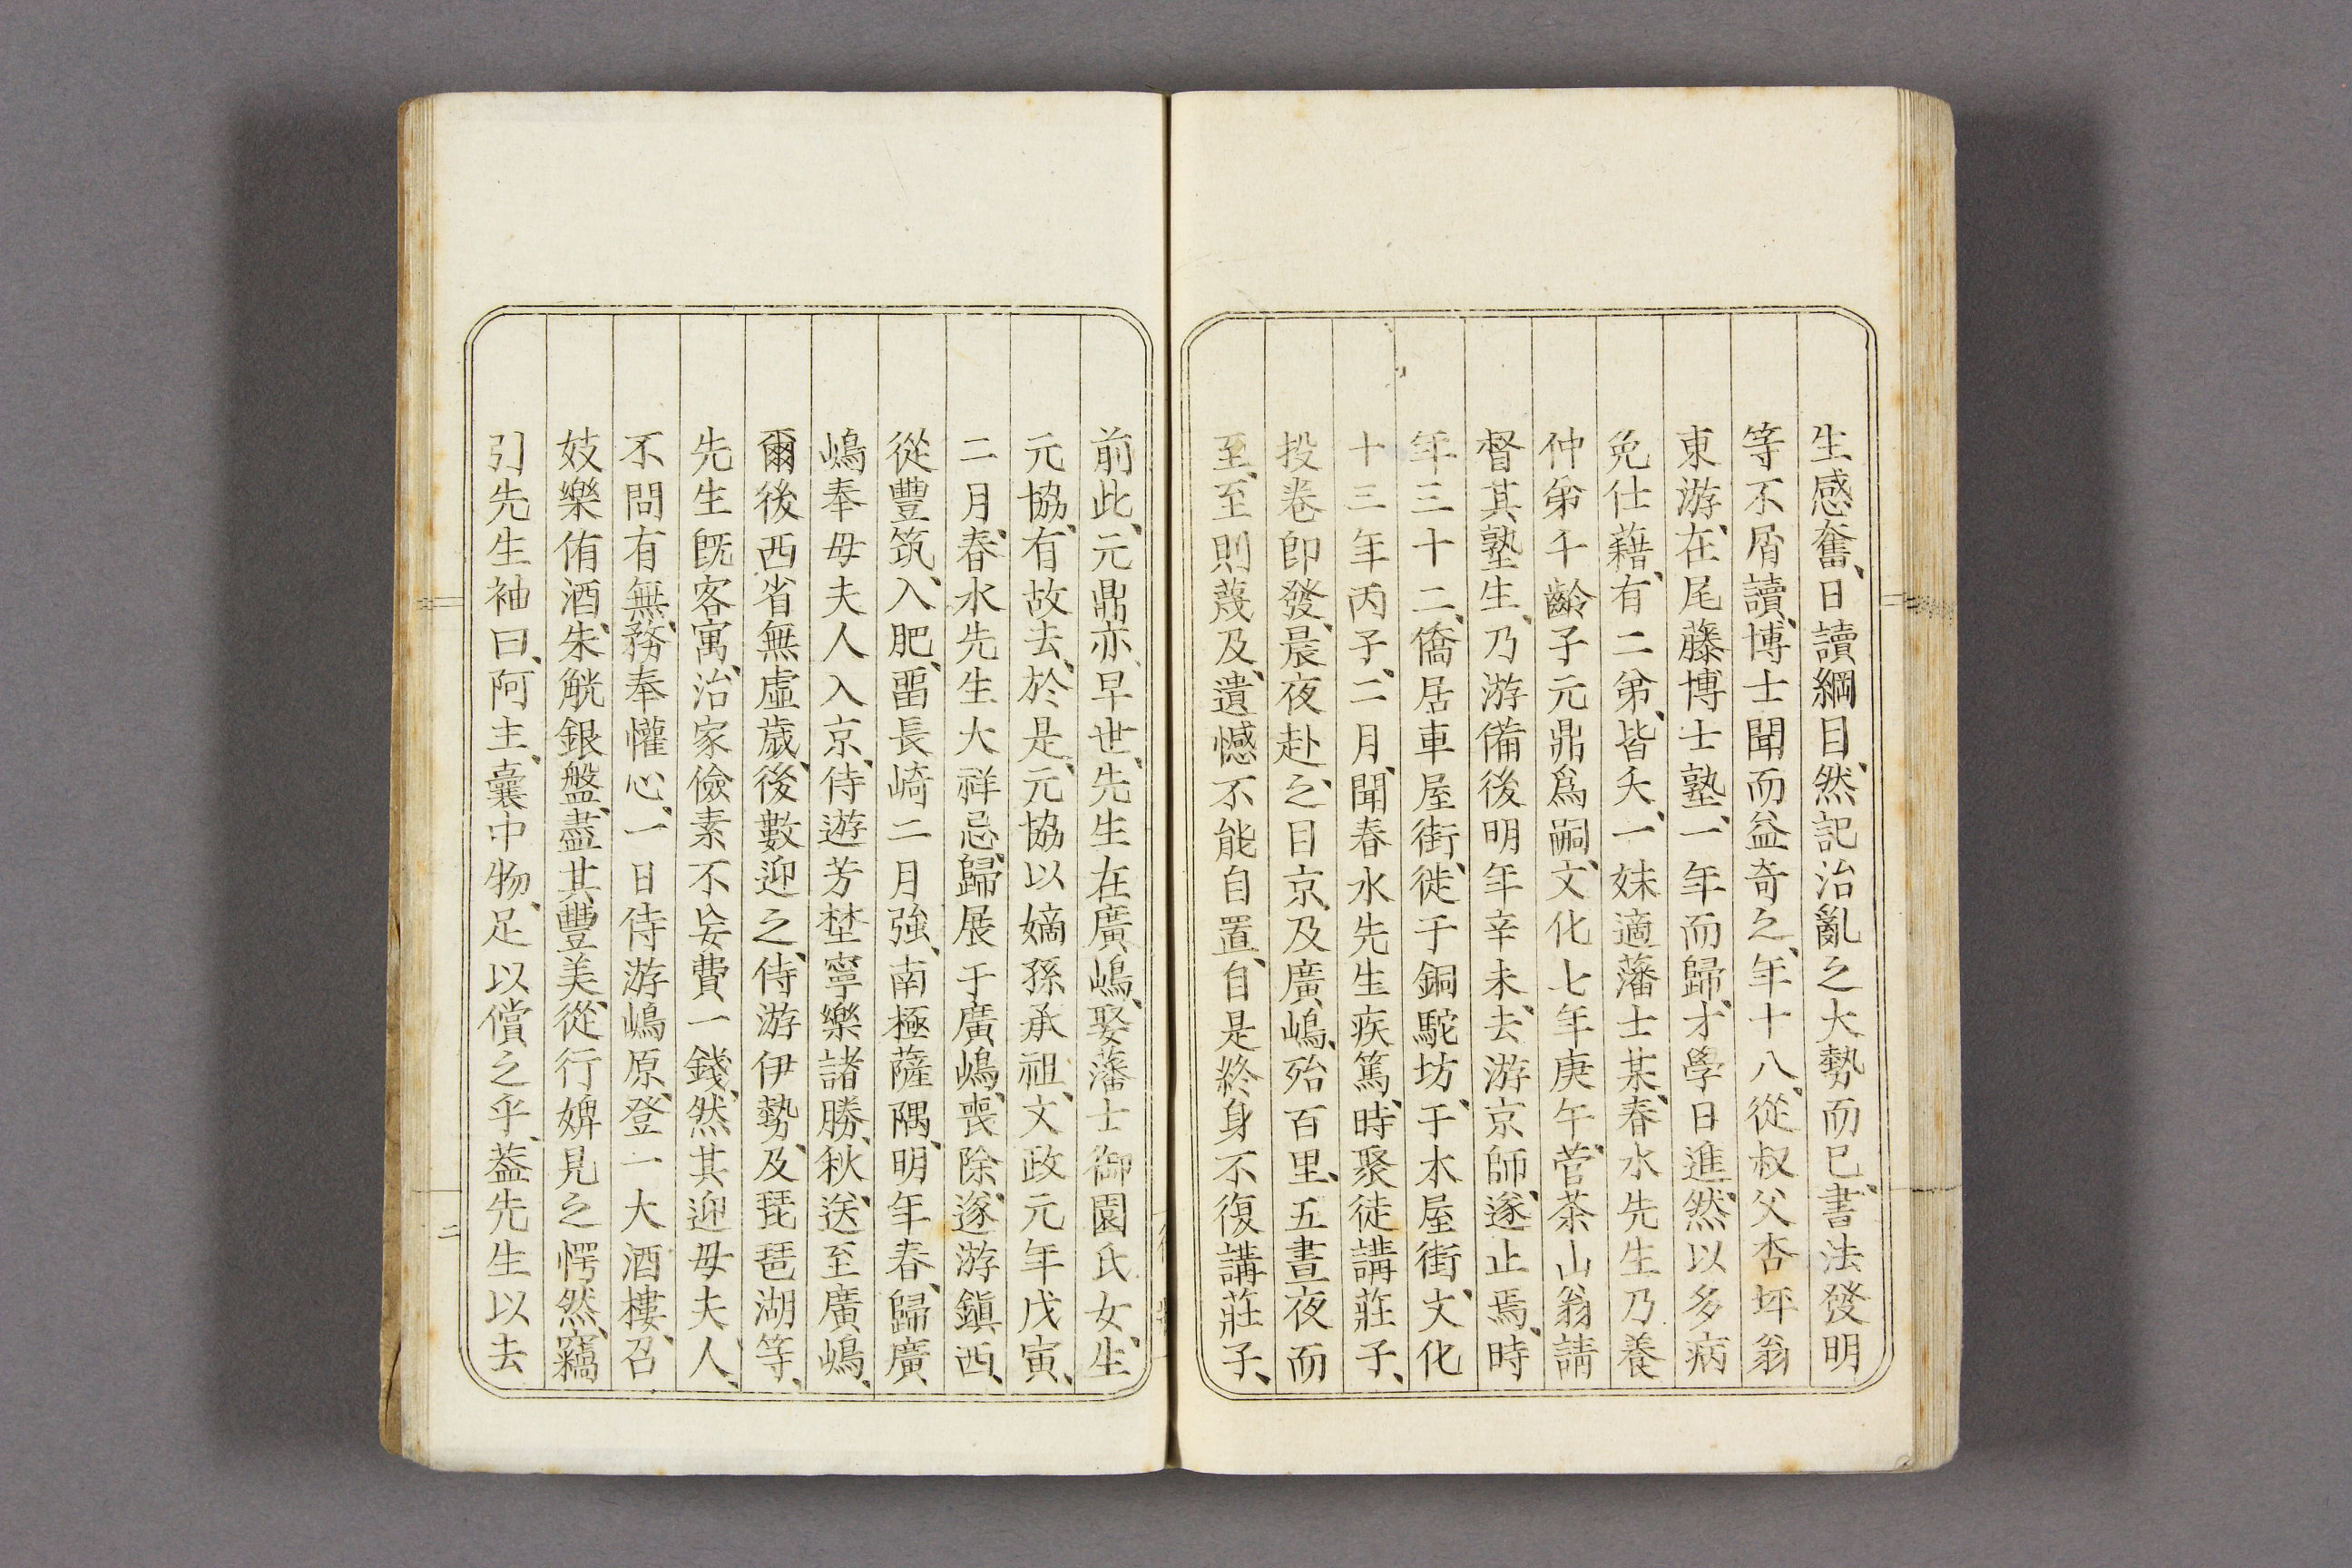 生感奮、日讀綱目、然記治亂之大勢而已、書法發明
等不屑讀、博士聞而益奇之、年十八、從叔父杏坪翁
東游、在尾藤博士塾、一年而歸、才學日進、然以多病
免仕藉、有二弟、皆夭、一妹適藩士某、春水先生乃養
仲弟千齡子元鼎爲嗣、文化七年庚午、菅茶山翁請
督其塾生、乃游備後、明年辛未、去游京師、遂止焉、時
年三十二、僑居車屋街、徙于銅駝坊、于木屋街、文化
十三年丙子、二月、聞春水先生疾篤、時聚徒講莊子、
投卷卽發、晨夜赴之、日京及廣嶋、殆百里、五晝夜而
至、至則蔑及、遺憾不能自置、自是終身不復講莊子、
前此、元鼎亦早世、先生在廣嶋、娶藩士御園氏女、生
元協、有故去、於是、元協以嫡孫承祖、文政元年戊寅、
二月、春水先生大祥忌、歸展于廣嶋、喪除、遂游鎭西、
從豐筑、入肥、畱長崎二月強、南極薩隅、明年春、歸廣
嶋奉母夫人入京、侍遊芳埜寧樂諸勝、秋、送至廣嶋、
爾後西省無虛歲、後數迎之、侍游伊勢、及琵琶湖等、
先生旣客寓、治家儉素不妄費一錢、然其迎母夫人、
不問有無、務奉懽心、一日侍游嶋原、登一大酒樓、召
妓樂侑酒、朱觥銀盤、盡其豐美、從行婢見之愕然、竊
引先生袖曰、阿主、囊中物、足以償之乎、葢先生以去
二